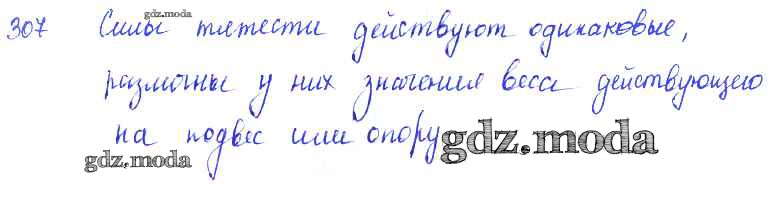 307 Силы тяжести действуют одинаковые,
gdz.moda
различны у них значения веса действующего
на подвес или опору
gdz.moda
gdz.moda